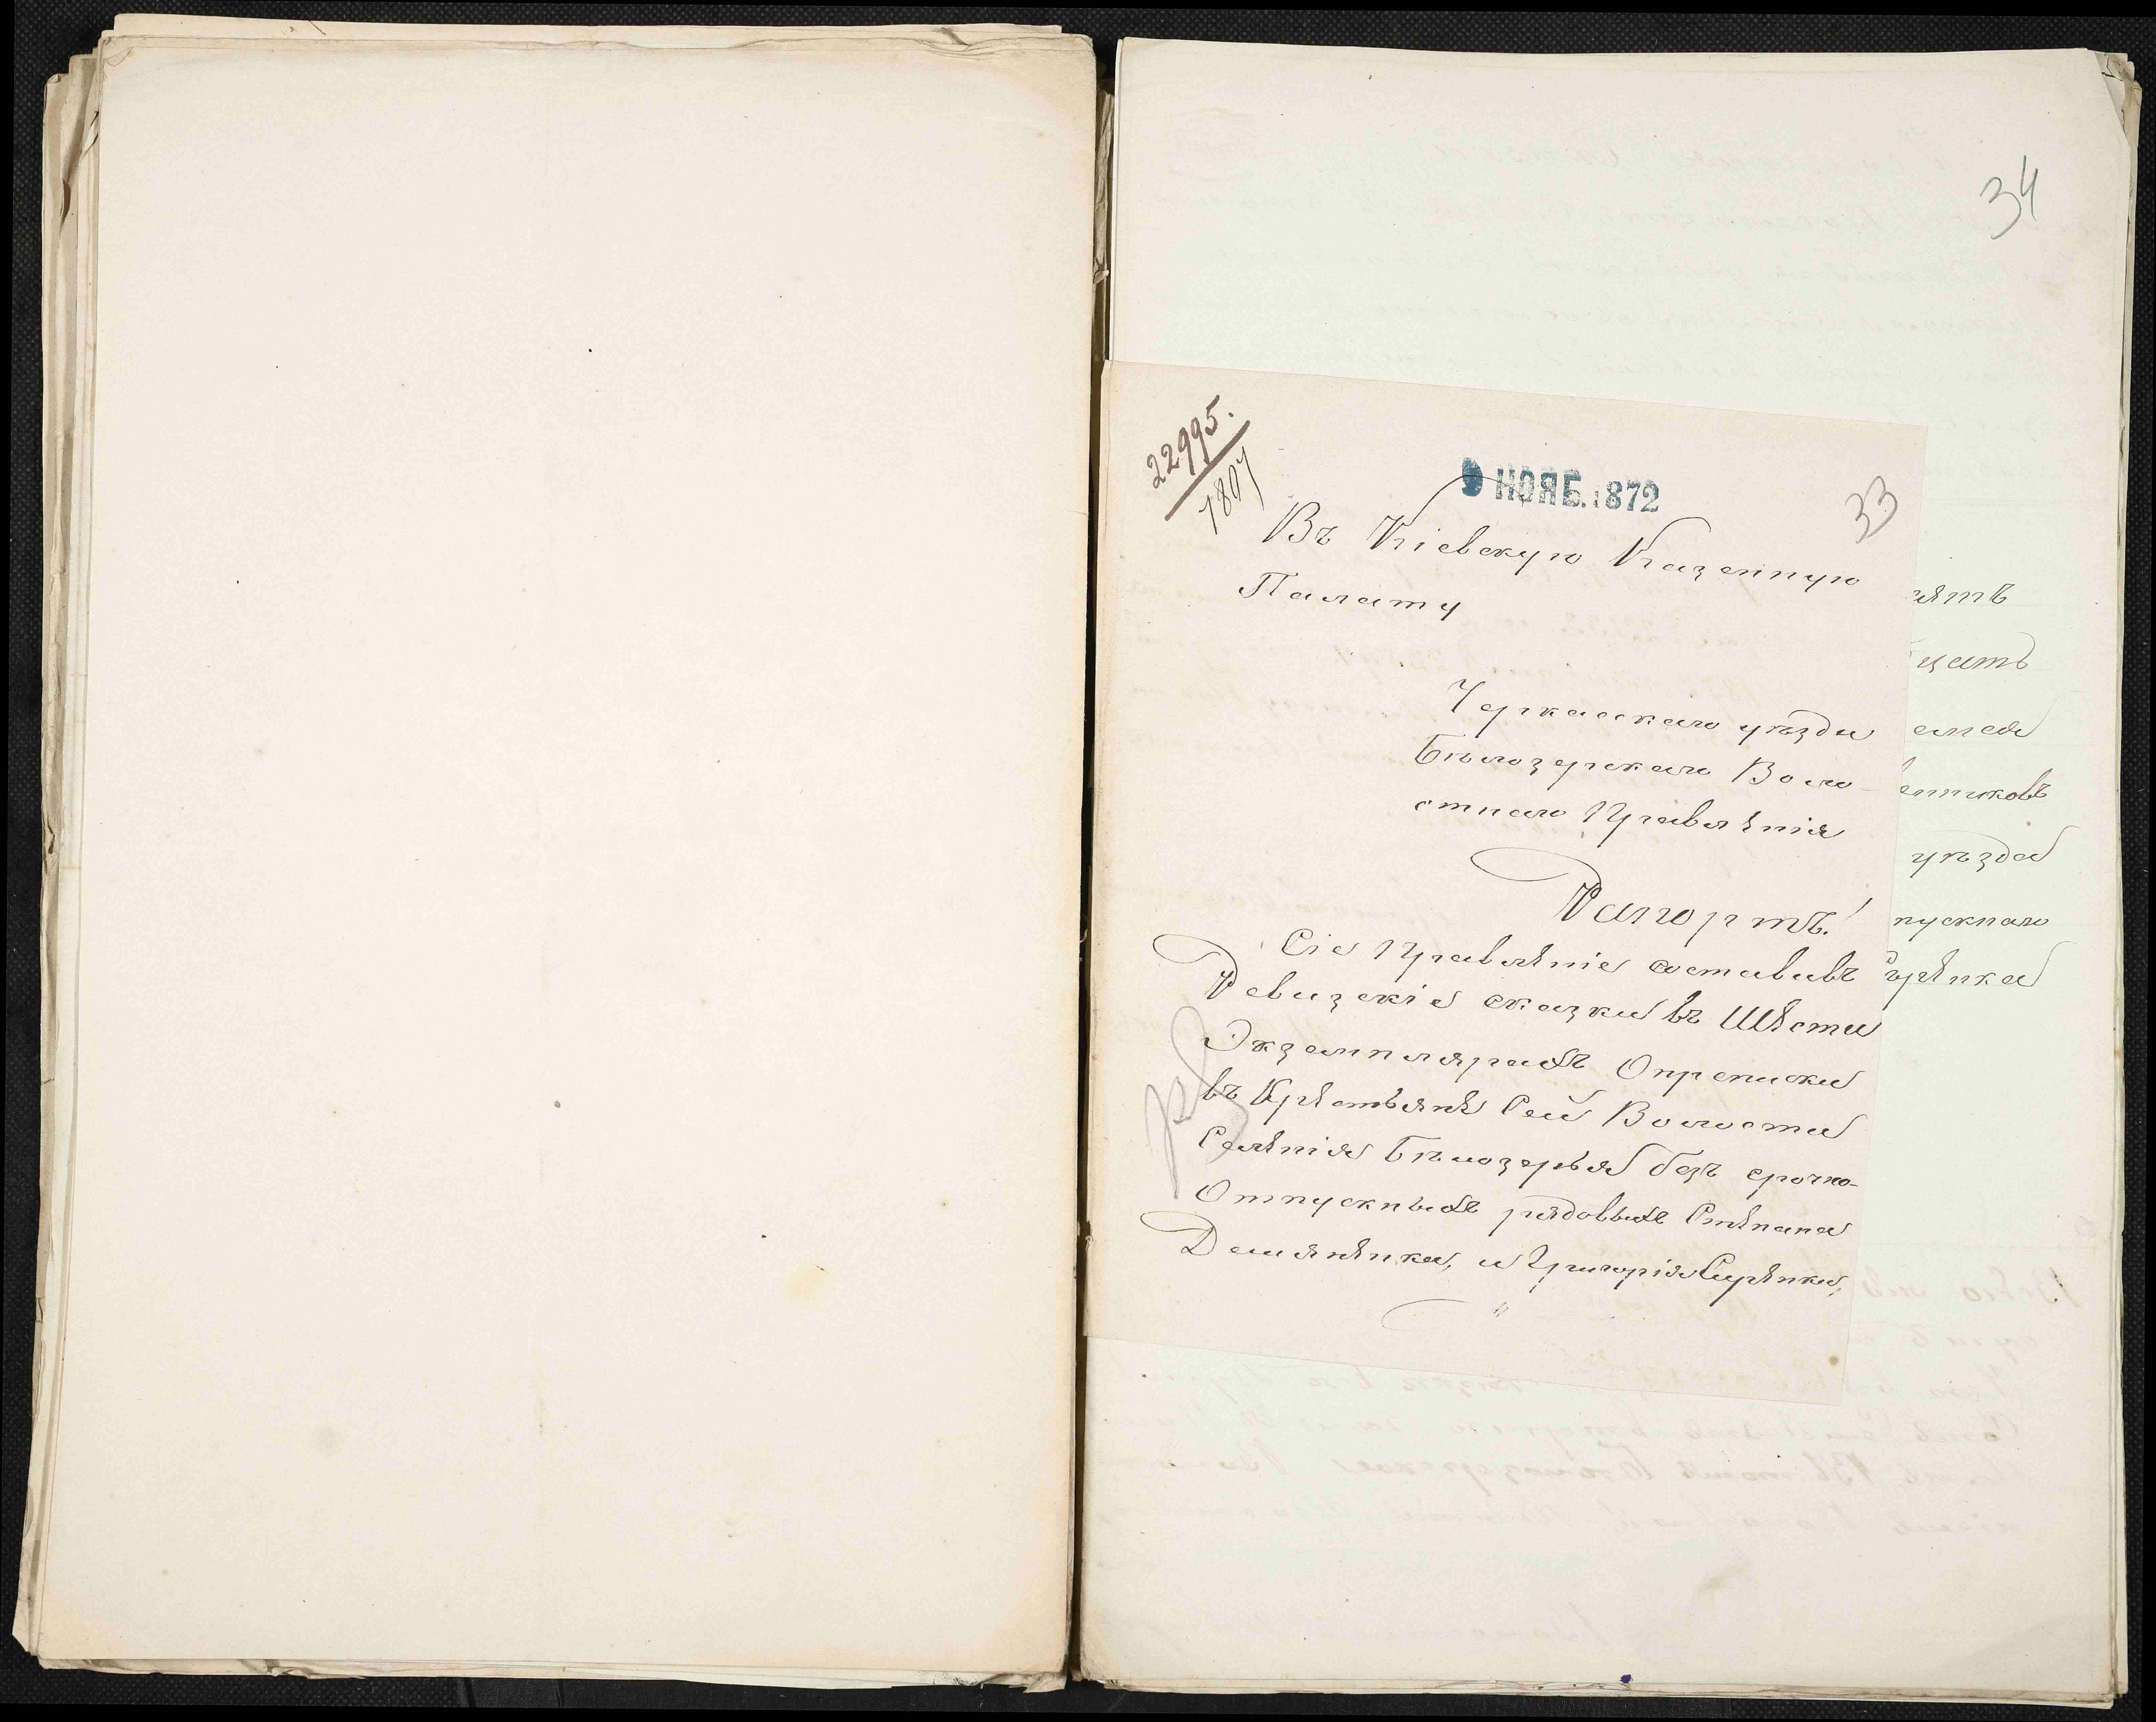 34
22995.
1807
НОЯБ.1872
33
Въ Кіевскую Казенную
Палату
Черкаскаго уѣзда
Бѣлозерскаго Воло-
стнаго Правленія
Рапортъ!
Сіе Правленіе составивъ
Ревизскіе сказки въ Шести
Экземплярахъ О
въ Крестьяне Сей Волости
Селенія Бѣлозерья безъ срочно-
Отпускныхъ рядовыхъ Степана
Демяненка, и Григорія Сиренка,
ятъ
цать
емея
енниковъ
уѣзда
пускнаго
иренка